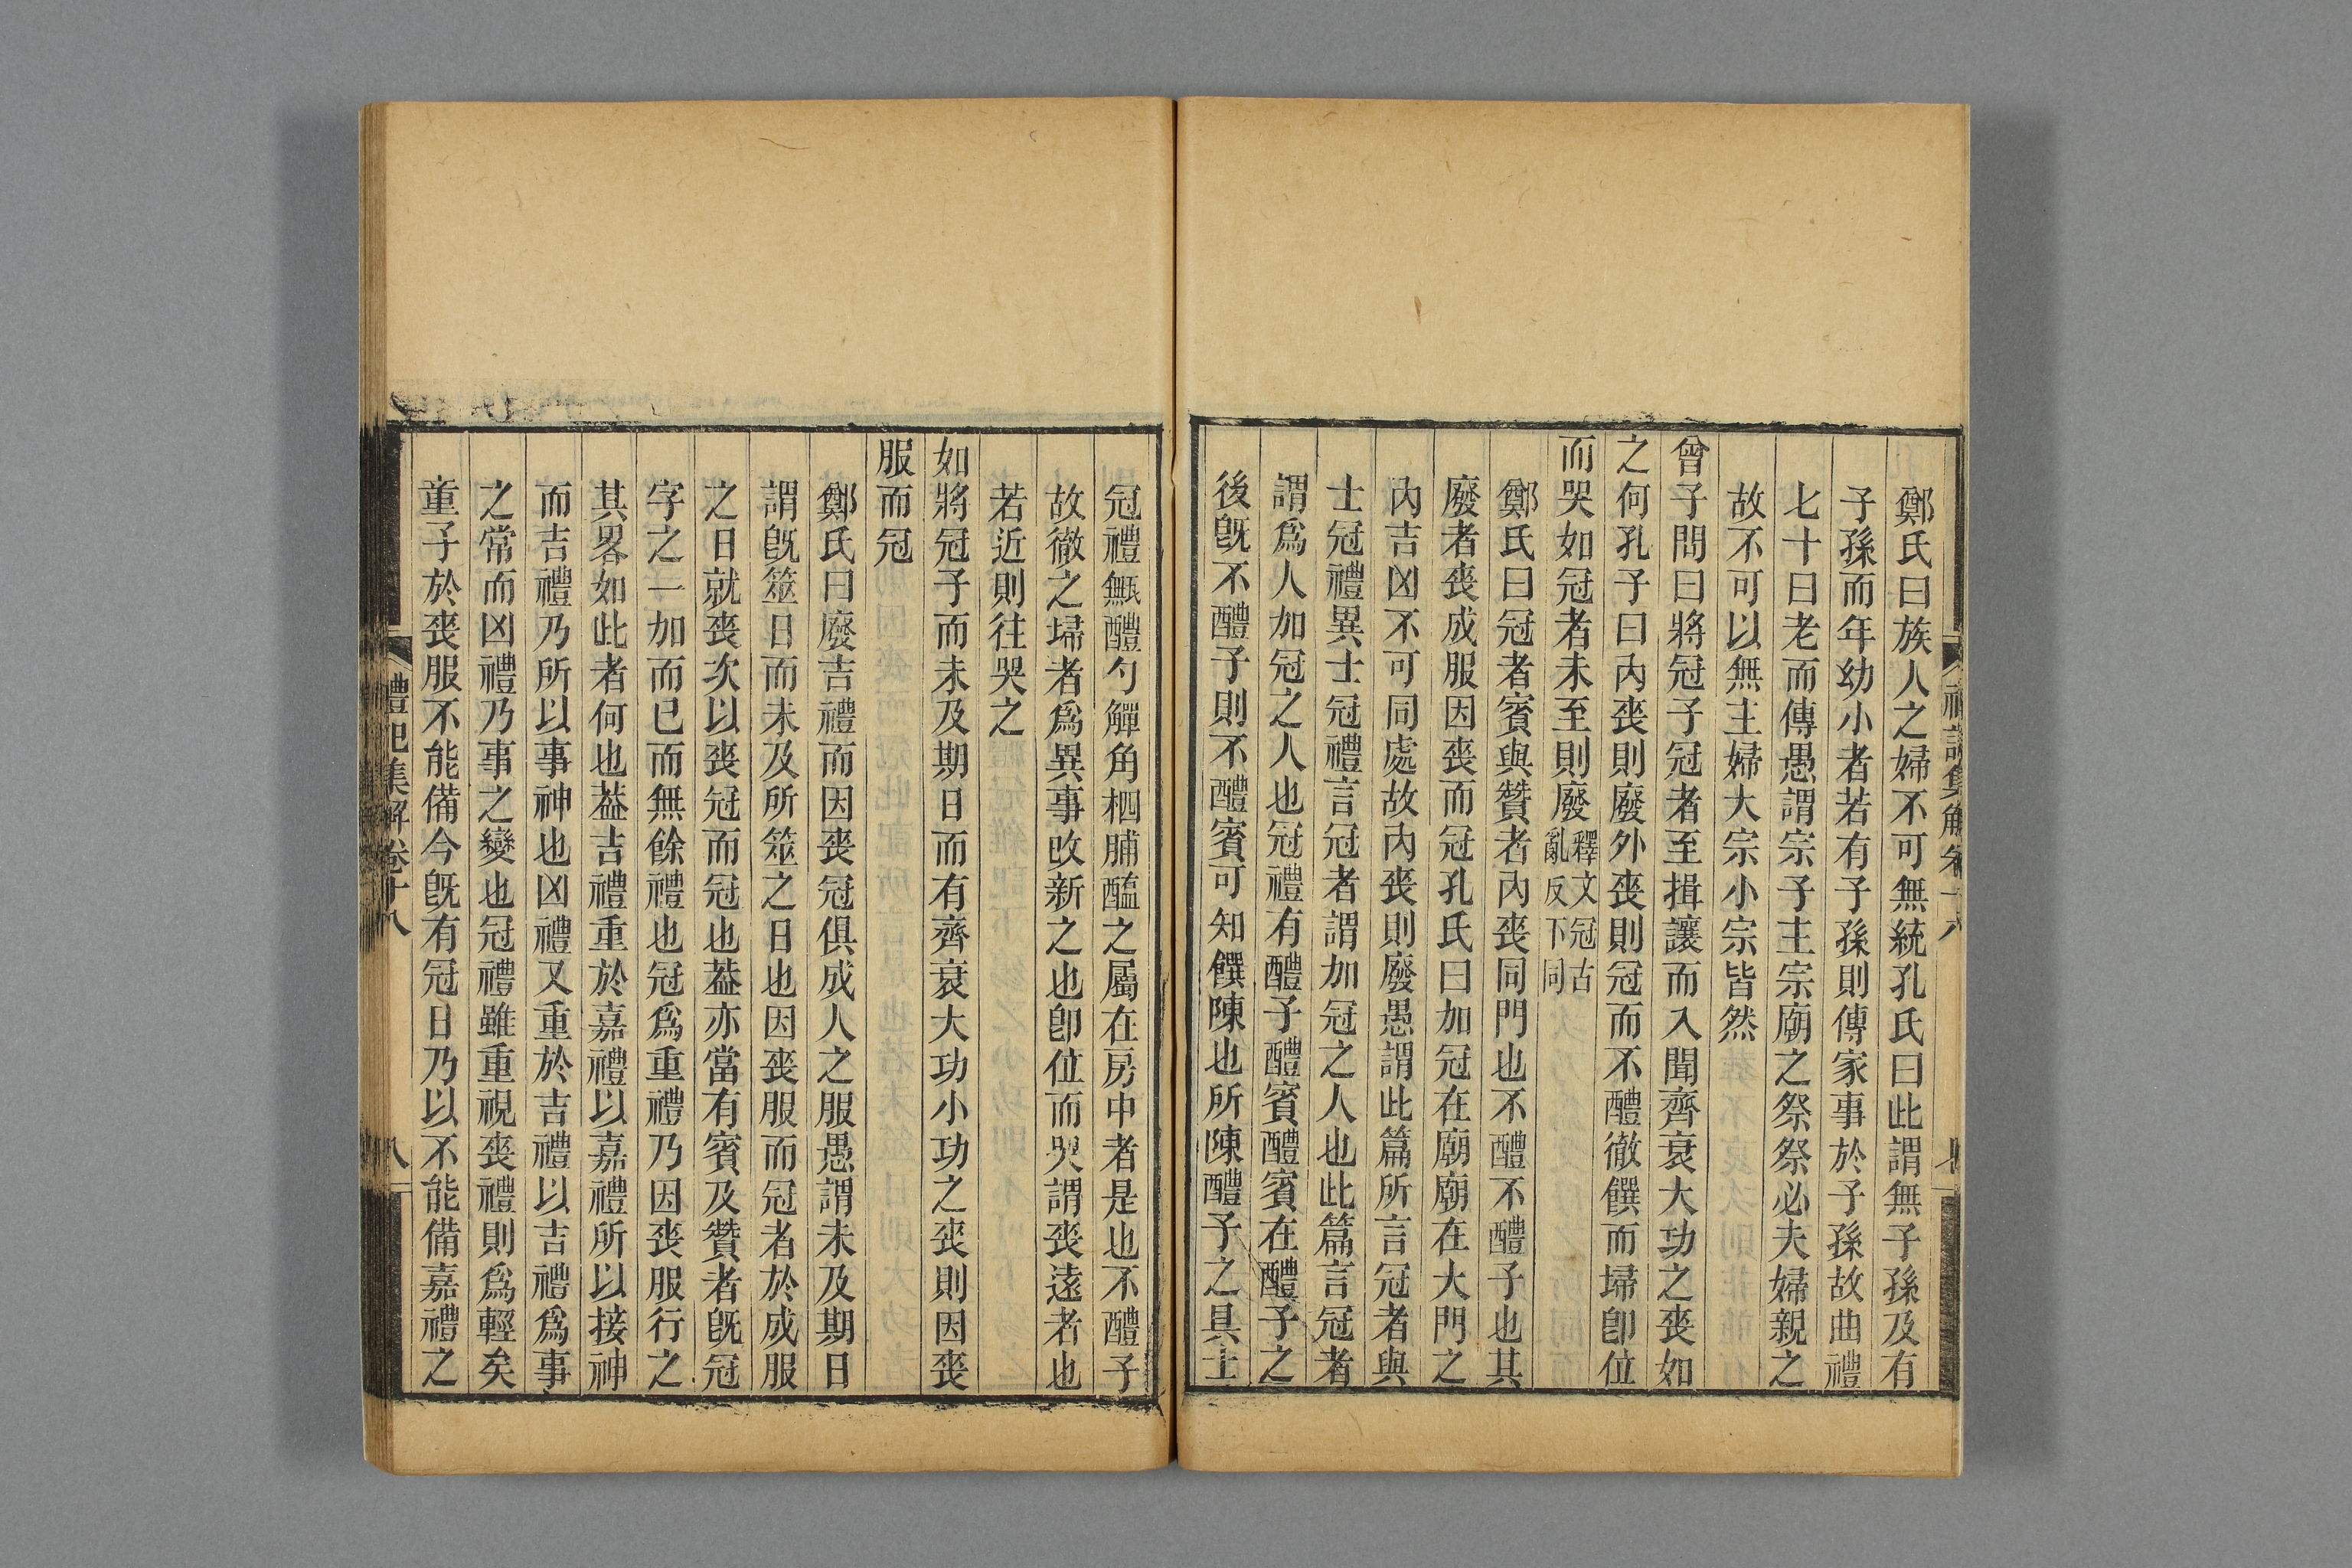 鄭氏曰族人之婦不可無統孔氏曰此謂無子孫及有
子孫而年幼小者若有子孫則傳家事於子孫故曲禮
七十曰老而傳愚謂宗子主宗廟之祭祭必夫婦親之
故不可以無主婦大宗小宗皆然
曾子問曰將冠子冠者至揖讓而入聞齊衰大功之喪如
之何孔子曰內喪則廢外喪則冠而不醴徹饌而埽卽位
而哭如冠者未至則廢釋文冠古亂反下同
鄭氏曰冠者賓與贊者內喪同門也不醴不醴子也其
廢者喪成服因喪而冠孔氏曰加冠在廟廟在大門之
內吉凶不可同處故內喪則廢愚謂此篇所言冠者與
士冠禮異士冠禮言冠者謂加冠之人也此篇言冠者
謂爲人加冠之人也冠禮有醴子醴賓醴賓在醴子之
後旣不醴子則不醴賓可知饌陳也所陳醴子之具士
冠禮甒醴勺觶角柶脯醢之屬在房中者是也不醴子
故徹之埽者爲異事改新之也卽位而哭謂喪遠者也
若近則往哭之
如將冠子而未及期日而有齊衰大功小功之喪則因喪
服而冠
鄭氏曰廢吉禮而因喪冠俱成人之服愚謂未及期日
謂旣筮日而未及所筮之日也因喪服而冠者於成服
之日就喪次以喪冠而冠也葢亦當有賓及贊者旣冠
字之一加而已而無餘禮也冠爲重禮乃因喪服行之
其畧如此者何也葢吉禮重於嘉禮以嘉禮所以接神
而吉禮乃所以事神也凶禮又重於吉禮以吉禮爲事
之常而凶禮乃事之變也冠禮雖重視喪禮則爲輕矣
童子於喪服不能備今旣有冠日乃以不能備嘉禮之
禮記集解卷十八
八